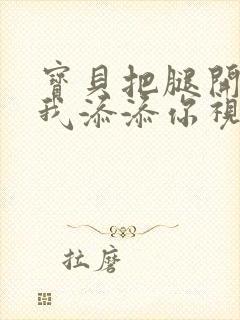 寶貝把腿開
我添添你視
拉磨